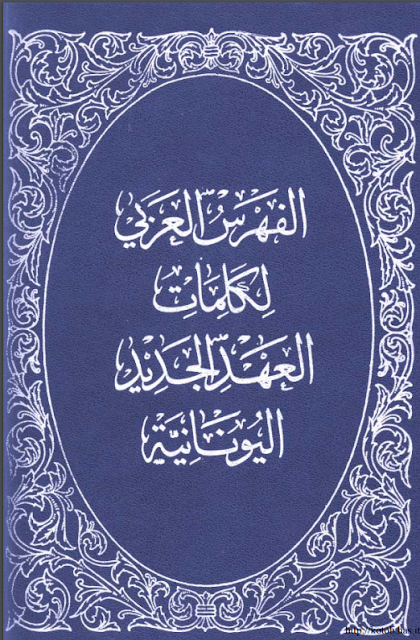 الفَهْرَسُ العَرَبي
لِكَلِمَاتِ
العَهْدِ الجَدِيْدِ
اليُونَانِيَّة